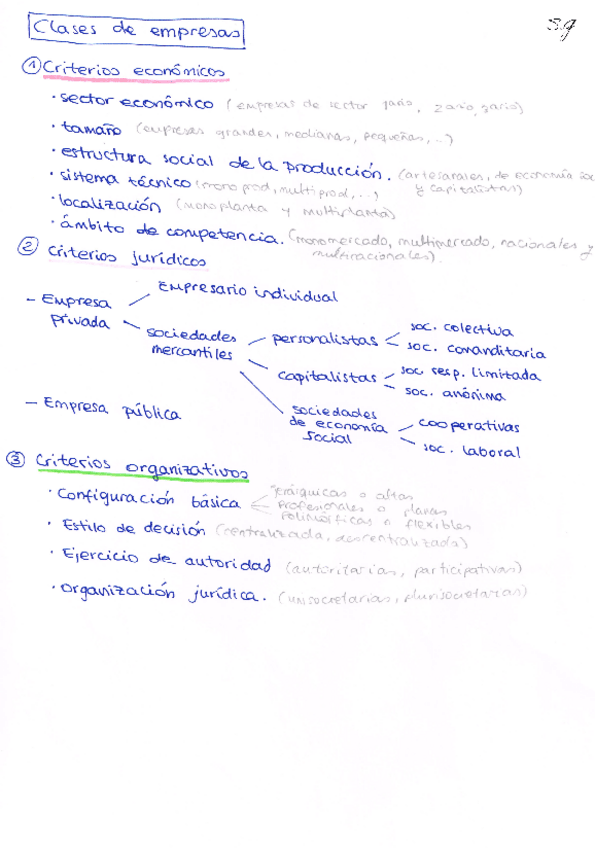 Clases de empresas
① Criterios económicos
· sector económico (empresas de sector 1ario, 2ario, 3ario)
· tamaño (empresas grandes, medianas, pequeñas,..)
· estructura social de la producción. (artesanales, de economía soc
y capitalistas)
· sistema técnico (monoprod, multiprod,...)
· localización (monoplanta y multiplanta)
· ámbito de competencia. (monomercado, multimercado, nacionales y
multinacionales).
② criterios jurídicos
- Empresa privada
Empresario individual
sociedades mercantiles
personalistas
soc. colectiva
soc. comanditaria
capitalistas
soc resp. limitada
soc. anónima
sociedades de economía social
cooperativas
soc. laboral
- Empresa pública
③ Criterios organizativos
· Configuración básica
jerárquicas o altas
profesionales o planas
o flexibles
· Estilo de decisión (centralizada, descentralizada)
· Ejercicio de autoridad (autoritarias, participativas)
· organización jurídica. (unisocietarias, plurisocietarias)